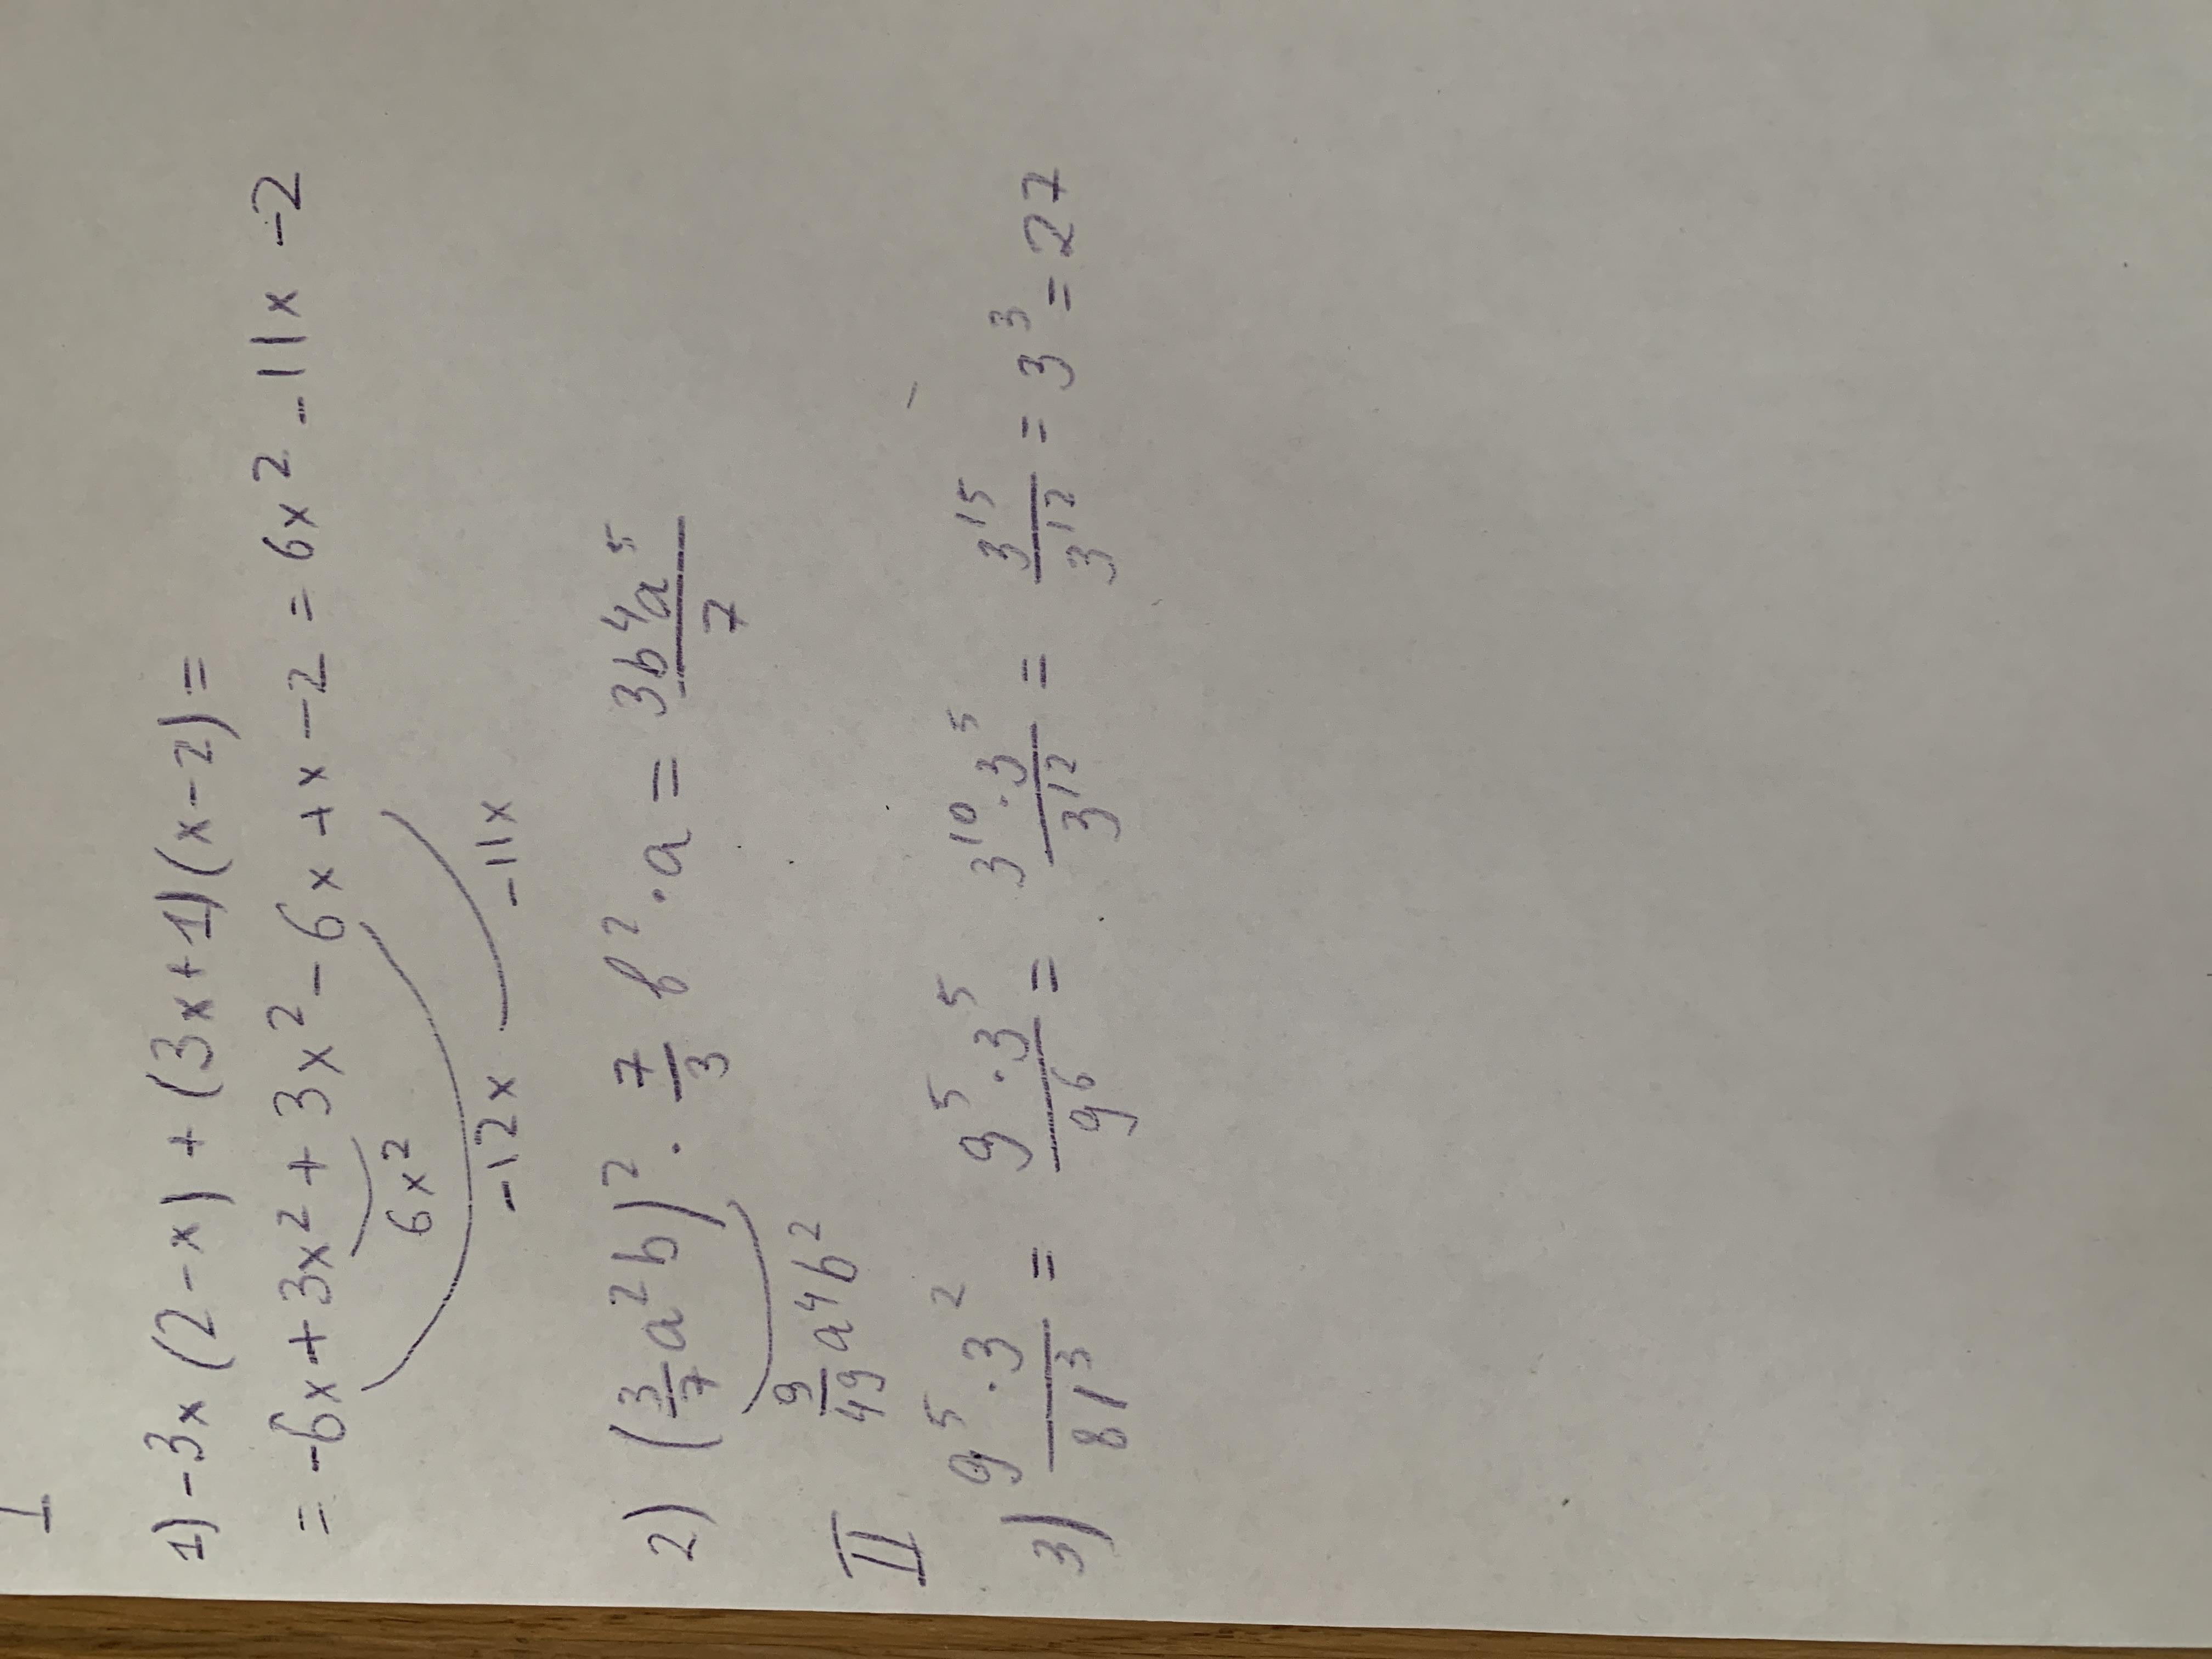 I
1) -3x(2-x)+(3x+1)(x-2)=
= -6x+3x²+3x²-6x+x-2=6x²-11x-2
6x²
-12x -11x
2) (3/7 a²b)² · 7/3 b² · a = 3b⁴a⁵/7
9/49 a⁴b²
II
3) 9⁵·3²/81³ = 9⁵·3⁵/9⁶ = 3¹⁰·3⁵/3¹² = 3¹⁵/3¹² = 3³ = 27